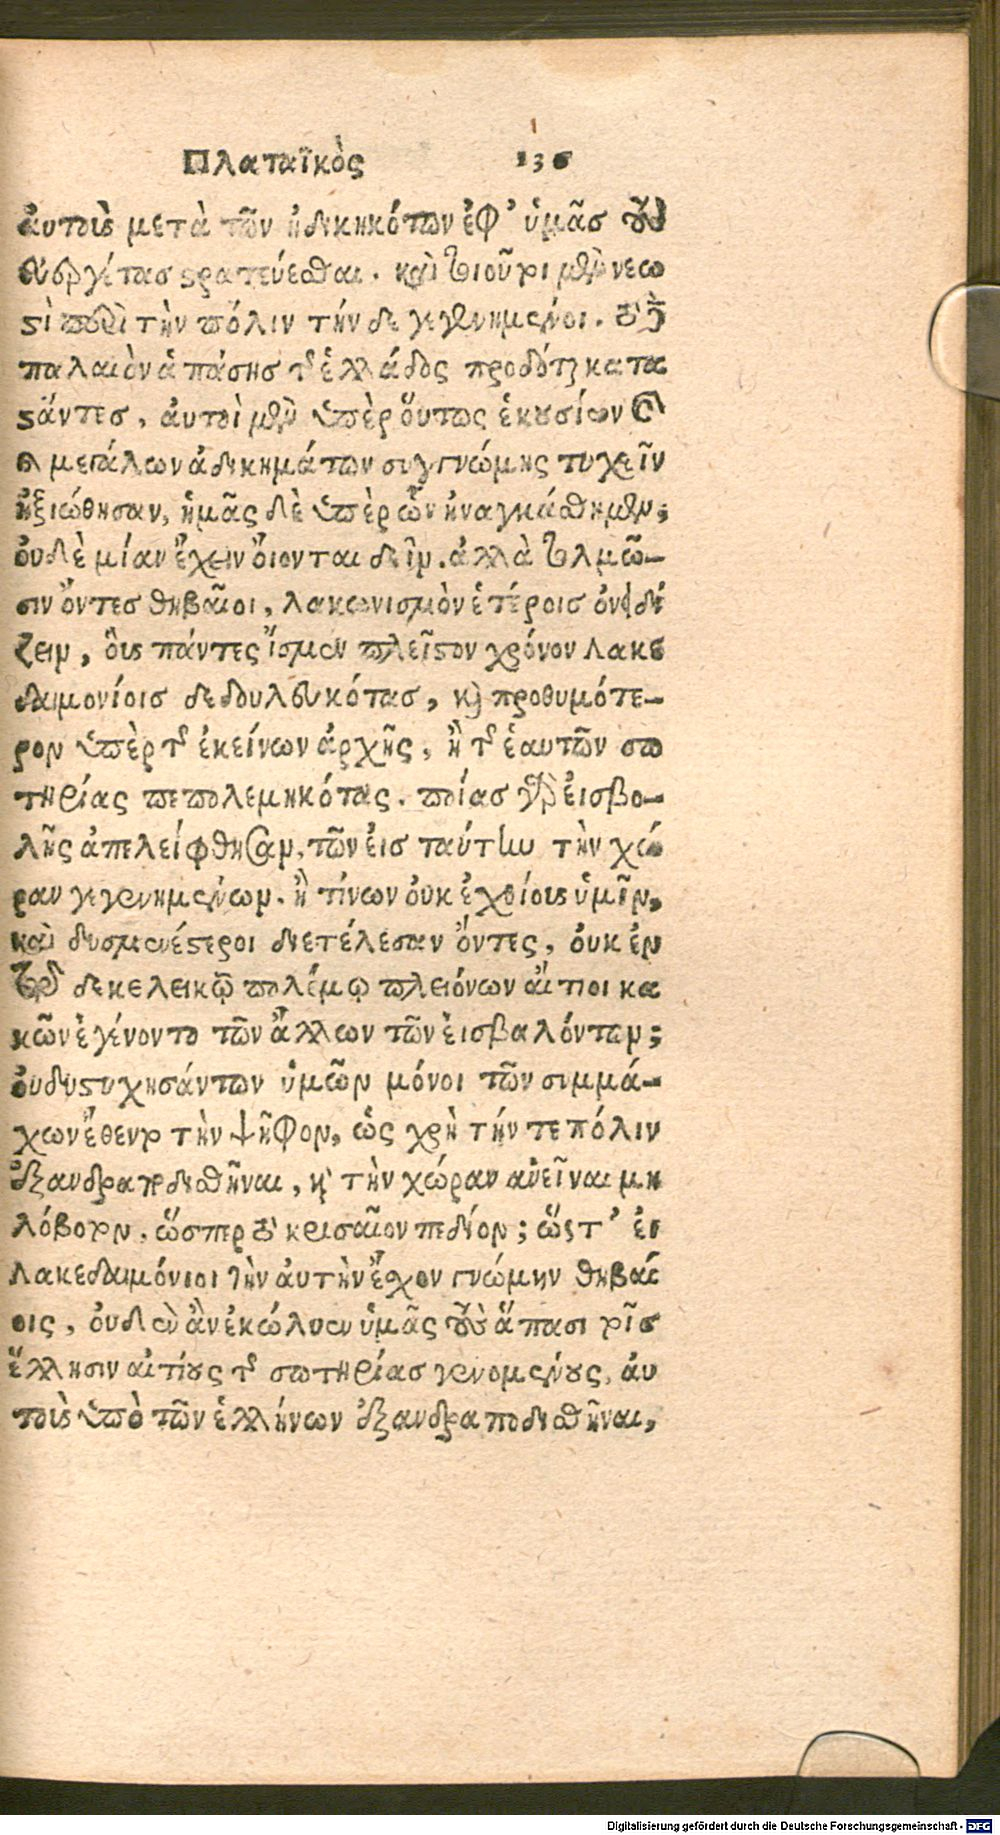 Πλαταϊκὸς 136
ἀυτοῖς μετὰ τῶν ἠδικηκότων ἐφ’ ὑμᾶσ τοὺσ
ἐυεργέτασ στρατεύεσθαι. καὶ τοιοῦτοι μὲν νεω
στὶ περὶ τὴν πόλιν τήνδε γεγενημένοι. τὸ δὲ
παλαιὸν ἁπάσησ τῆσ ἑλλάδος προδόται κατα
στάντεσ, ἀυτοὶ μὲν ὑπὲρ οὕτως ἑκουσίων καὶ
μεγάλων ἀδικημάτων συγγνώμης τυχεῖν
ἠξιώθησαν, ἡμᾶς δὲ ὑπὲρ ὧν ἠναγκάσθημεν,
ὀυδὲ μίαν ἔχειν ὄιονται δεῖν. ἀλλὰ τολμῶ-
σιν ὄντεσ θηβαῖοι, λακωνισμὸν ἑτέροισ ὀνειδί
ζειν, ὃυς πάντες ἴσμεν πλεῖστον χρόνον λακε
δαιμονίοισ δεδουλευκότασ, καὶ προθυμότε-
ρον ὑπὲρ τῆσ ἐκείνων ἀρχῆς, ἢ τῆσ ἑαυτῶν σω
τηρίας πεπολεμηκότας. ποίασ γὰρ ἐισβο-
λῆς ἀπελείφθησαν, τῶν ἐισ ταύτην τὴν χώ
ραν γεγενημένων. ἢ τίνων ὀυκ ἐχθίους ὑμῖν,
καὶ δυσμενέστεροι διετέλεσαν ὄντες, ὀυκ ἐν
τῷ δεκελεικῷ πολέμῳ πλειόνων ἄιτιοι κα
κῶν ἐγένοντο τῶν ἄλλων τῶν ἐισβαλόντων;
ὀυδυστυχησάντων ὑμῶν μόνοι τῶν συμμά-
χων ἔθεντο τὴν ψῆφον, ὡς χρὴ τήν τε πόλιν
ἐξανδραποδισθῆναι, καὶ τὴν χώραν ἀνεῖναι μη
λόβοτον, ὥσπερ τὸ κρισαῖον πεδίον; ὥστ’ ἐι
λακεδαιμόνιοι τὴν ἀυτὴν ἔχον γνώμην θηβαί
οις, ὀυδὲν ἂν ἐκώλυεν ὑμᾶς τοὺσ ἅπασι τοῖσ
ἕλλησιν ἀιτίους τῆσ σωτηρίασ γενομένους, ἀυ
τοὺς ὑπὸ τῶν ἑλλήνων ἐξανδραποδισθῆναι,
Digitalisierung gefördert durch die Deutsche Forschungsgemeinschaft - DFG